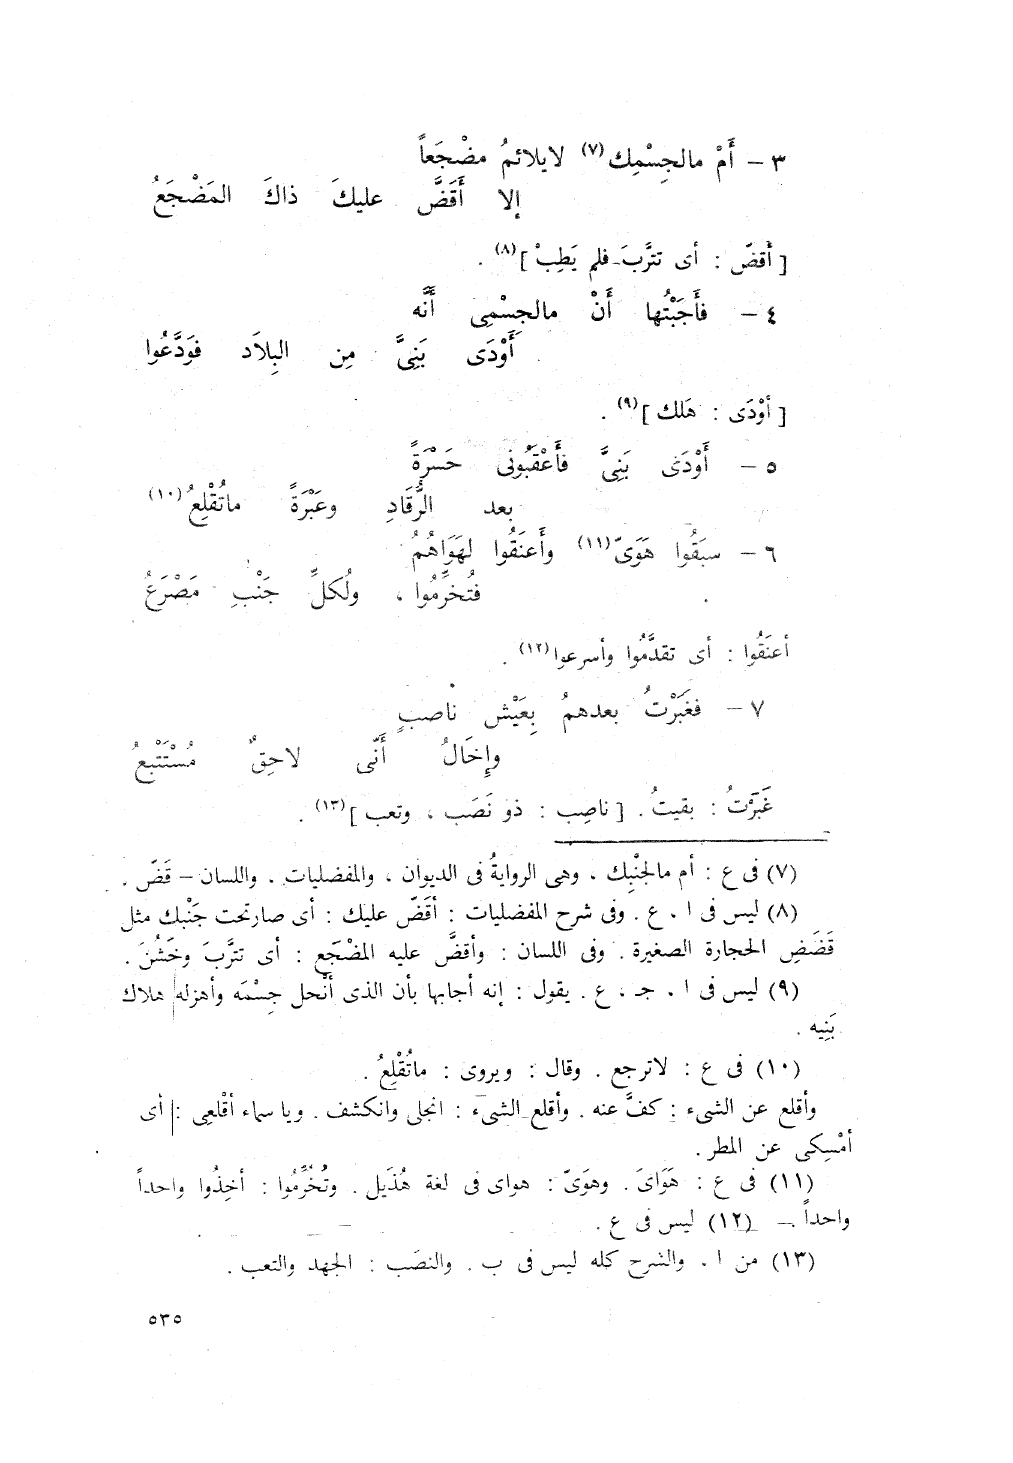 ٣ – أَمْ مالجِسْمِك(٧) لايلائمُ مضْجَعاً
إلا أَقَضَّ عليكَ ذاكَ المَضْجَعُ
[ أَقضّ : أى تترَّبَ فلم يَطِبْ ](٨) .
٤ – فأَجَبْتُها أَنْ مالجِسْمِى أَنَّه
أَوْدَى بَنِىَّ مِن البِلاَد فوَدَّعُوا
[ أوْدَى : هَلك ](٩) .
٥ – أَوْدَى بَنِىَّ فأَعْقَبُونى حَسْرَةً
بعد الرُّقَادِ وعَبْرَةً ماتُقْلِعُ(١٠)
٦ – سبَقُوا هَوَىّ(١١) وأَعنَقُوا لهَوَاهُمُ
فتُخرِّمُوا ، ولُكلِّ جَنْبٍ مَصْرَعُ
أعنَقُوا : أى تقدَّمُوا وأسرعوا(١٢) .
٧ – فغَبَرْتُ بعدهمُ بِعَيْش ناصبٍ
وإِخَالُ أَنّى لاحِقٌ مُسْتَتْبعُ
غَبَرْتُ : بقيتُ . [ ناصِب : ذو نَصَب ، وتعب ](١٣) .
(٧) فى ع : أم مالجنْبِك ، وهى الروايةُ فى الديوان ، والمفضليات ، واللسان – قَضّ .
(٨) ليس فى ا ، ع . وفى شرح المفضليات : أقَضّ عليك : أى صار تحت جَنْبك مثل
قَضَضِ الحجارة الصغيرة . وفى اللسان : وأقضَّ عليه المضْجَع : أى تترَّبَ وخَشُنَ .
(٩) ليس فى ا ، جـ ، ع . يقول : إنه أجابها بأن الذى أنْحل جِسْمَه وأهزله هلاك
بَنِيه .
(١٠) فى ع : لاترجع . وقال : ويروى : ماتُقْلِعُ .
وأقلع عن الشىء : كفَّ عنه . وأقلع الشىء : انجلى وانكشف . ويا سماء أقْلعِى : أى
أمْسِكى عن المطر .
(١١) فى ع : هَوَاىَ . وهوَىّ : هواى فى لغة هُذَيل . وتُخُرِّمُوا : أخِذُوا واحداً
واحداً . – (١٢) ليس فى ع .
(١٣) من ا . والشرح كله ليس فى ب . والنصَب : الجهد والتعب .
٥٣٥